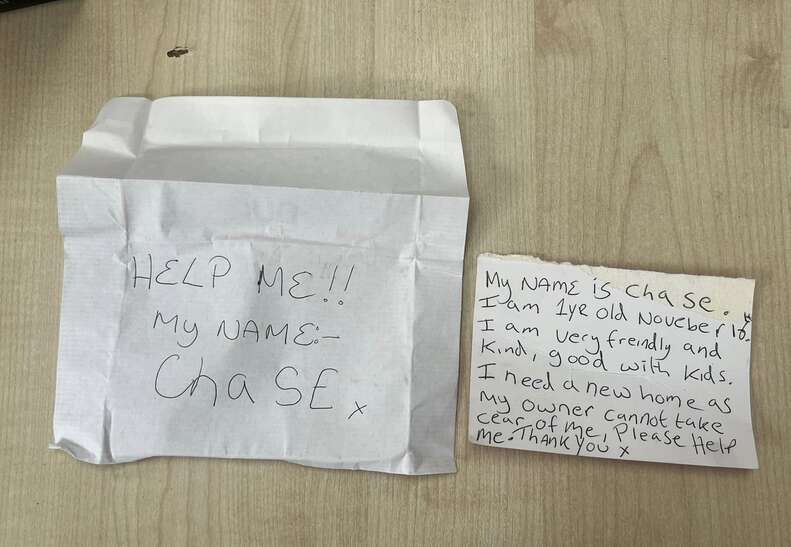 HELP ME!!
My NAME:-
ChaSE x
My NAME is ChaSE.
I am 1yr old Noveber 18th.
I am very freindly and
kind, good with kids.
I need a new home as
my owner cannot take
cear of me, Please Help
me. Thank you x